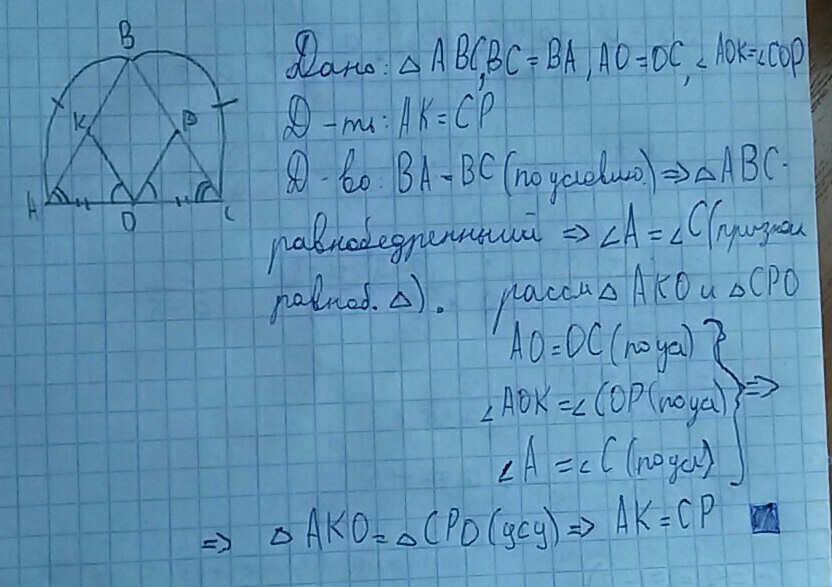 B
K
P
A
O
C
Дано: △ ABC, BC = BA, AO = OC, ∠AOK = ∠COP
Д-ть: AK = CP
Д-во: BA = BC (по условию) ⇒ △ABC -
равнобедренный ⇒ ∠A = ∠C (признак
равноб. △). рассм △ AKO и △CPO
AO = OC (по ус)
∠AOK = ∠COP (по ус) ⇒
∠A = ∠C (по усл)
⇒ △ AKO = △CPO (усу) ⇒ AK = CP